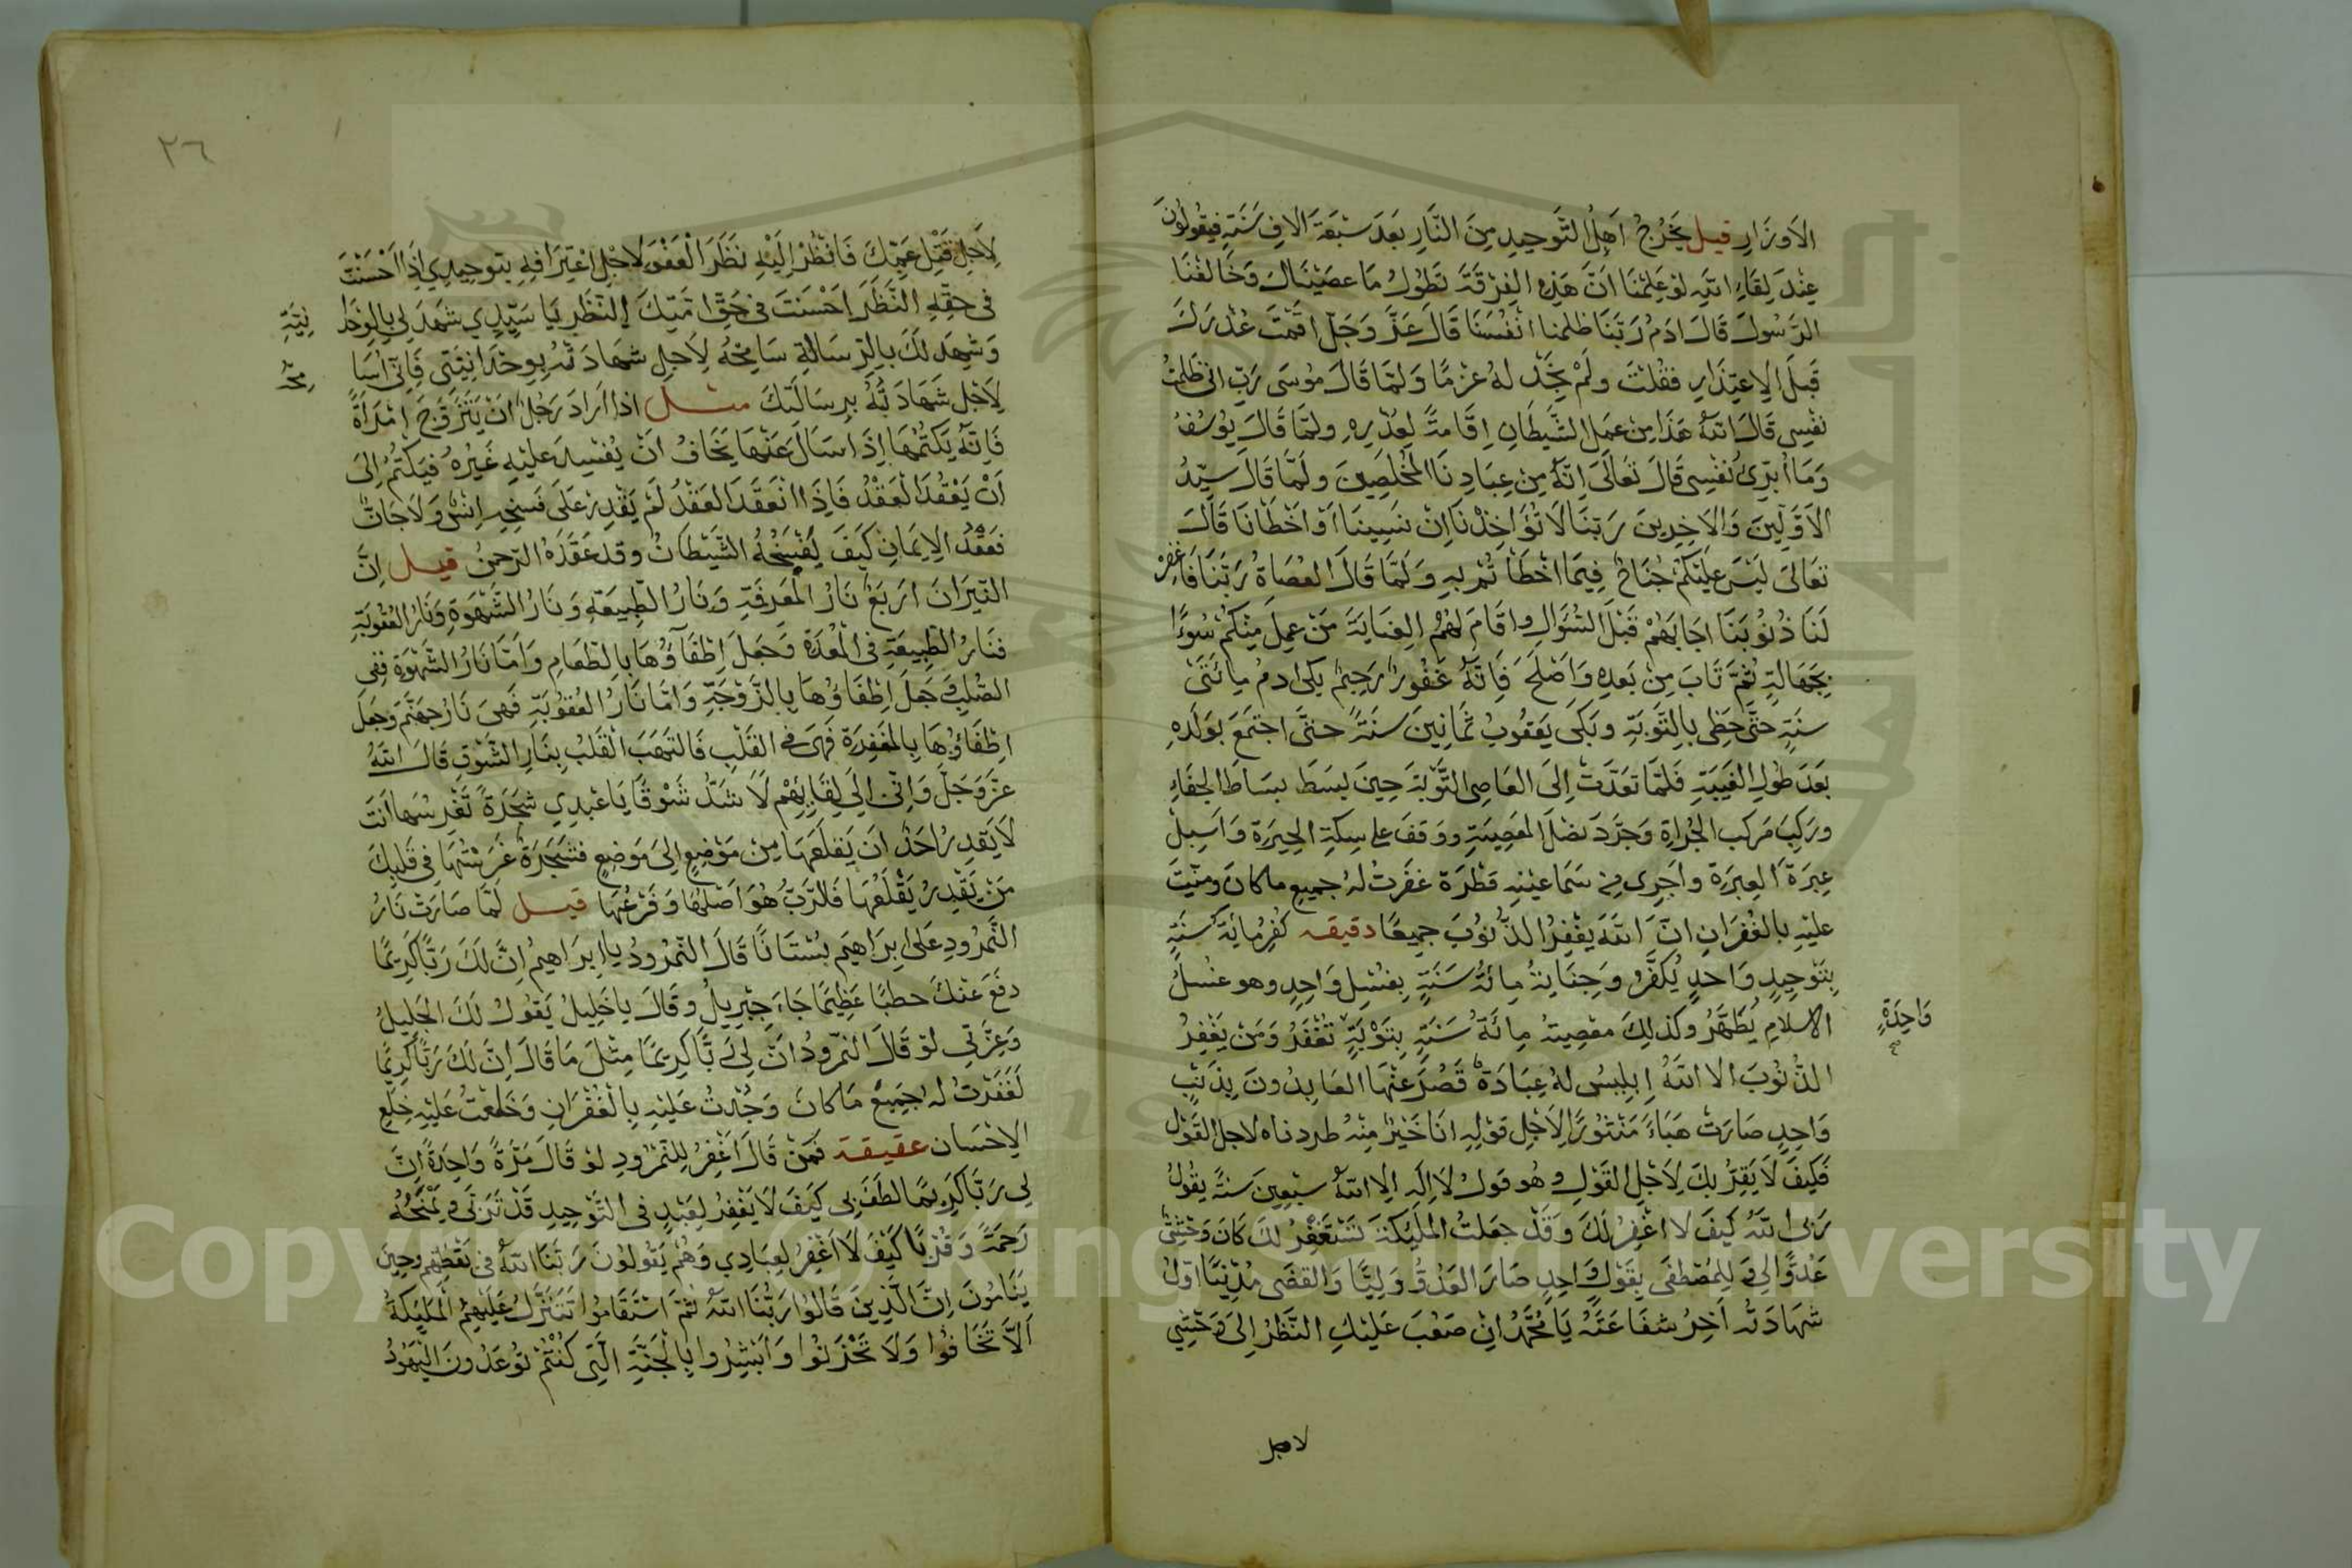 الاوزارِ قيل يَخرُجُ اَهلُ التَّوحيدِ مِنَ النَّارِ بَعدَ سَبْعَة الافِ سَنَةٍ فيقولُونَ
عِنْدَ لِقَاءِ اللهِ لوْ عَلِمْنَا اَنَّ هَذِهِ الفِرْقَةَ تَطُولُ مَا عَصَيْنَاكَ وَخَالَفْنَا
الرَّسُولَ قَالَ ادَمُ رَبَّنَا ظلمنا انْفُسَنَا قَالَ عَزَّ وَجَلَّ اقَمْتَ عُذْرَكَ
قَبلَ الاِعتِذَارِ فقُلْتَ ولَمْ نَجِدْ لَهُ عَزمًا وَلمّا قَالَ مُوسَى رَبِّ انى ظَلمْتُ
نفْسِى قَالَ اللهُ هَذَا مِن عَمَلِ الشَّيطَانِ اِقَامةً لِعُذْرِهِ ولمَّا قَالَ يُوسُفُ
وَمَا اُبَرِّىُٔ نَفْسِى قَالَ تعَالَى اِنَّهُ مِن عِبَادِنَا المُخلَصِينَ ولَمَّا قَالَ سَيّدُ
الاَوَّلِينَ وَالاَخِرِينَ رَبّنَا لَا تُؤَاخِذْنَا اِنْ نَسِينَا اَوْ اخْطَانَا قَالَ
تعَالَى لَيْسَ عَلَيْكُمْ جُنَاحٌ فِيمَا اخْطَأْتُمْ بِهِ وَلَمَّا قَالَ العُصَاةُ رَبّنَا فَاغفِرْ
لَنَا ذُنُوبَنَا اجَابَهُمْ قَبْلَ السُّوَالِ واقَامَ لَهُمُ العِنَايَةَ مَنْ عَمِلَ مِنكُمْ سُوءًا
بِجَهَالَةٍ ثُمَّ تَابَ مِنْ بَعدِهِ وَاَصْلَحَ فَاِنَّهُ غَفُورٌ رَحِيمٌ بكى ادمُ مِائَتَىْ
سنَةٍ حتَّى حَظِى بِالتَّوبَةِ وبَكَى يَعقُوبُ ثَمَانِينَ سَنَةً حتَّى اجْتَمَعَ بَولَدهِ
بَعدَ طُولِ الغَيبَةِ فَلمَّا تعَدَّتْ اِلَى العَاصِى التَّوْبَةَ حِينَ بسَطَ بِسَاطَ الجفَاءِ
ورَكِبَ مَركبَ الجُراةِ وَجَرَّدَ نصْلَ المَعصِيَةِ ووَقفَ على سِكةِ الحِيرَةِ وَاَسبلَ
عبرَة العِبرَةِ واَجرى مِن سَمَا عيْنِهِ قَطْرَة غفَرتُ لهُ جميع ماكانَ ومنّيْتَ
عليْهِ بالغُفرَانِ انَّ اللَّهَ يَغْفِرُ الذُّنُوبَ جمِيعًا دقيقه كُفرُ مِائَة سَنَةٍ
بِتَوْحِيدٍ وَاحدٍ يُكفَّرُ وَجنَابةُ مِائَةُ سَنَةٍ بِغسْلٍ وَاحِدٍ وهو غسْلُ
الاسلامِ يُطَهَّرُ وكذلِكَ معْصِيةُ مِائَة سَنَةٍ بِتَوْبَةٍ تُغْفَرُ وَمَنْ يَغْفِرُ
وَاحِدَةٍ صح
الذُّنُوبَ الا اللَّهُ اِبلِيسُ لهُ عِبَادَةٌ قَصُرَ عنْهَا العَابِدُونَ بِذَنْبٍ
وَاحِدٍ صَارَتْ هَبَاءً مَنثوُرًا لِاَجْلِ قوْلِهِ انَا خَيْرٌ مِنْهُ طردناه لاجل القَوْلِ
فَكَيفَ لَا يَقِرُّبكَ لِاَجْلِ القَوْلِ وهُو قَولُ لَا اِلَهَ اِلا اللهُ سَبْعِينَ سَنةً يقُولُ
رَبى اللَّهُ كَيفَ لَا اغْفِرُ لَكَ وَقَدْ جعَلتُ الملَئِكَةَ تَسْتَغفِرُ لكَ كَانَ وَحْشِىٌّ
عَدُوًّا لِى وَلِلمُصْطفَى بِقَوْلٍ وَاحِدٍ صَارَ العَدُوُّ وَلِيًّا وَالقصَى مُدْنِيًّا اوّلُ
شهَادَته اَخِرُ شفَاعَتهُ يَا مُحَمَّدُ اِنْ صَعُبَ عَلَيْكِ النَّظَرُ اِلَى وَحْشِىٍّ
لاجل
٢٦
لِاَجْلِ قَتْلِ عَمِّكَ فَانْظُرْ اِلَيْهِ نَظَرَ الْعَفْوِ لِاجْلِ اعْتِرَافِهِ بتوحيدِي اِذَا اَحْسَنْتَ
فى حقِّهِ النَّظَرَ اِحْسَنتَ فى حَقِّ اُمَّتِكَ اِلنَّظرِ يَا سَيّدِي شهدَ لِى بِالوَحْدَا
نِيَّةِ
وَشهِدَ لَكَ بالرِّسَالَةِ سَامِحْهُ لِاَجلِ شَهَادَتهِ بِوِحْدَانِيَّتى فَاِنّى اُسَا
مِحُهُ
لاَجْلِ شَهَادَتُهُ بِرِسَالَتِكَ مثل اذا اَرَادَ رَجُلٌ اَنْ يَتَزَوَّجَ امْرَاَةً
فَاِنَّهُ يَكتُمُهَا اِذَا سَالَ عَنْهَا يَخَافُ اَنْ يُفْسِدَ علَيْهِ غَيْرُهُ فيَكتُمُ اِلىَ
اَنْ يَعْقُدَ الْعَقْدُ فَاِذَا انْعَقَدَ العَقْدُ لَمْ يَقْدِرْ علَى فَسْخِهِ اِنسٌ وَلَا جَانٌ
فعَقْدُ الاِيمَانِ كَيفَ يَفْسَخُهُ الشَّيْطَانُ وقد عَقَدَهُ الرّحمنُ قيل اِنَّ
النّيرَانَ اَربَعٌ نَارُ المَعرِفَةِ وَنَارُ الطّبِيعَةِ وَنَارُ الشَّهْوَةِ وَنَارُ العُقُوبَةِ
فنَارُ الطَّبِيعَةِ فى الْمَعدَة وَجعَلَ اِطْفَاؤُهَا بِالطعَامِ وَامَّا نَارُ الشَّهْوَةِ فَفِى
الصُّلبِ وَجعَلَ اِطْفَاوُهَا بِالزَّوْجَةِ وَامَّا نَارُ العُقوبَةِ فَهِىَ نَارُ جهَنَّمَ وَجعَلَ
اِطْفَاؤُهَا بِالمغْفِرَةِ فهِىَ فى القَلْبِ فَالتَهَبَ القَلبُ بِنَارِ الشَّوْقِ قَالَ اللهُ
عَزَّ وَجَلَّ وَاِنّى اِلَى لِقَايِهِمْ لَاَشدُّ شَوْقًا يَا عَبْدِي شَجَرَةً تَغْرِسُهَا اَنتَ
لَا يَقدِرُ اَحَدٌ اَن يَقلَعَهَا مِنْ مَوْضِعٍ اِلَى مَوضِعٍ فَشَجَرَةٌ غَرَسْتُهَا فى قَلْبِكَ
مَنْ يَقْدِرُ يَقْلَعُهَا فَالرّبُّ هُوَ اَصْلُهَا وَفَرْعُهَا قيل لَمَّا صَارَتْ نَارُ
النَّمرُودِ علَى اِبرَاهِيمَ بُسْتَانًا قَالَ النَّمْرُودُ يا ابرَاهِيمُ اِنَّ لَكَ رَبًّا كَرِيمًا
دفَعَ عَنكَ حطبًا عَظِيمًا جَاءَ جِبْرِيلُ وقَالَ ياخَلِيلُ يَقُولُ لَكَ الجَلِيلُ
وَعِزَّتى لوْ قَالَ النّمرُودُ انَّ لِى رَبًّا كَرِيمًا مِثْلَ مَا قَالَ اِنَّ لَكَ رَبًّا كَرِيمًا
لَغَفَرْتُ لهُ جَمِيعَ مَاكَانَ وَجُدْتُ عَلَيْهِ بِالْغُفْرَانِ وَخَلَعْتُ عَلَيْهِ خِلَعَ
الاِحْسَان عقيقة فَمَنْ قَالَ اَغْفِرُ لِلنّمْرُودِ لوْ قَالَ مَرَّةً وَاحِدَةً اِنَّ
لِى رَبًّا كَرِيمًا لطَفَ بى كَيفَ لَا يَغْفِرُ لِعَبْدٍ فى التَّوْحِيدِ قَدْ تَرَبَّى وَيَمْنَحُهُ
رَحمَةً وَقُرْبًا كَيْفَ لَا اَغْفِرُ لِعِبَادِي وَهُمْ يَقُولُونَ رَبّنَا اللهُ فى يَقْظَتِهِم وحِينَ
يَنَامُونَ اِنَّ الَّذِينَ قَالُوا رَبُّنَا اللهُ ثمَّ اسْتَقَامُوا تَتَنَزَّلُ عَلَيْهِمُ الْمَلَئِكَةُ
اَلاَّ تَخَافُوا وَلَا تَحْزَنُوا وَاَبْشِرُوا بِالْجَنَّةِ الَّتى كُنْتُمْ تُوعَدُونَ الْيَهُودُ
Copyright © King Saud University